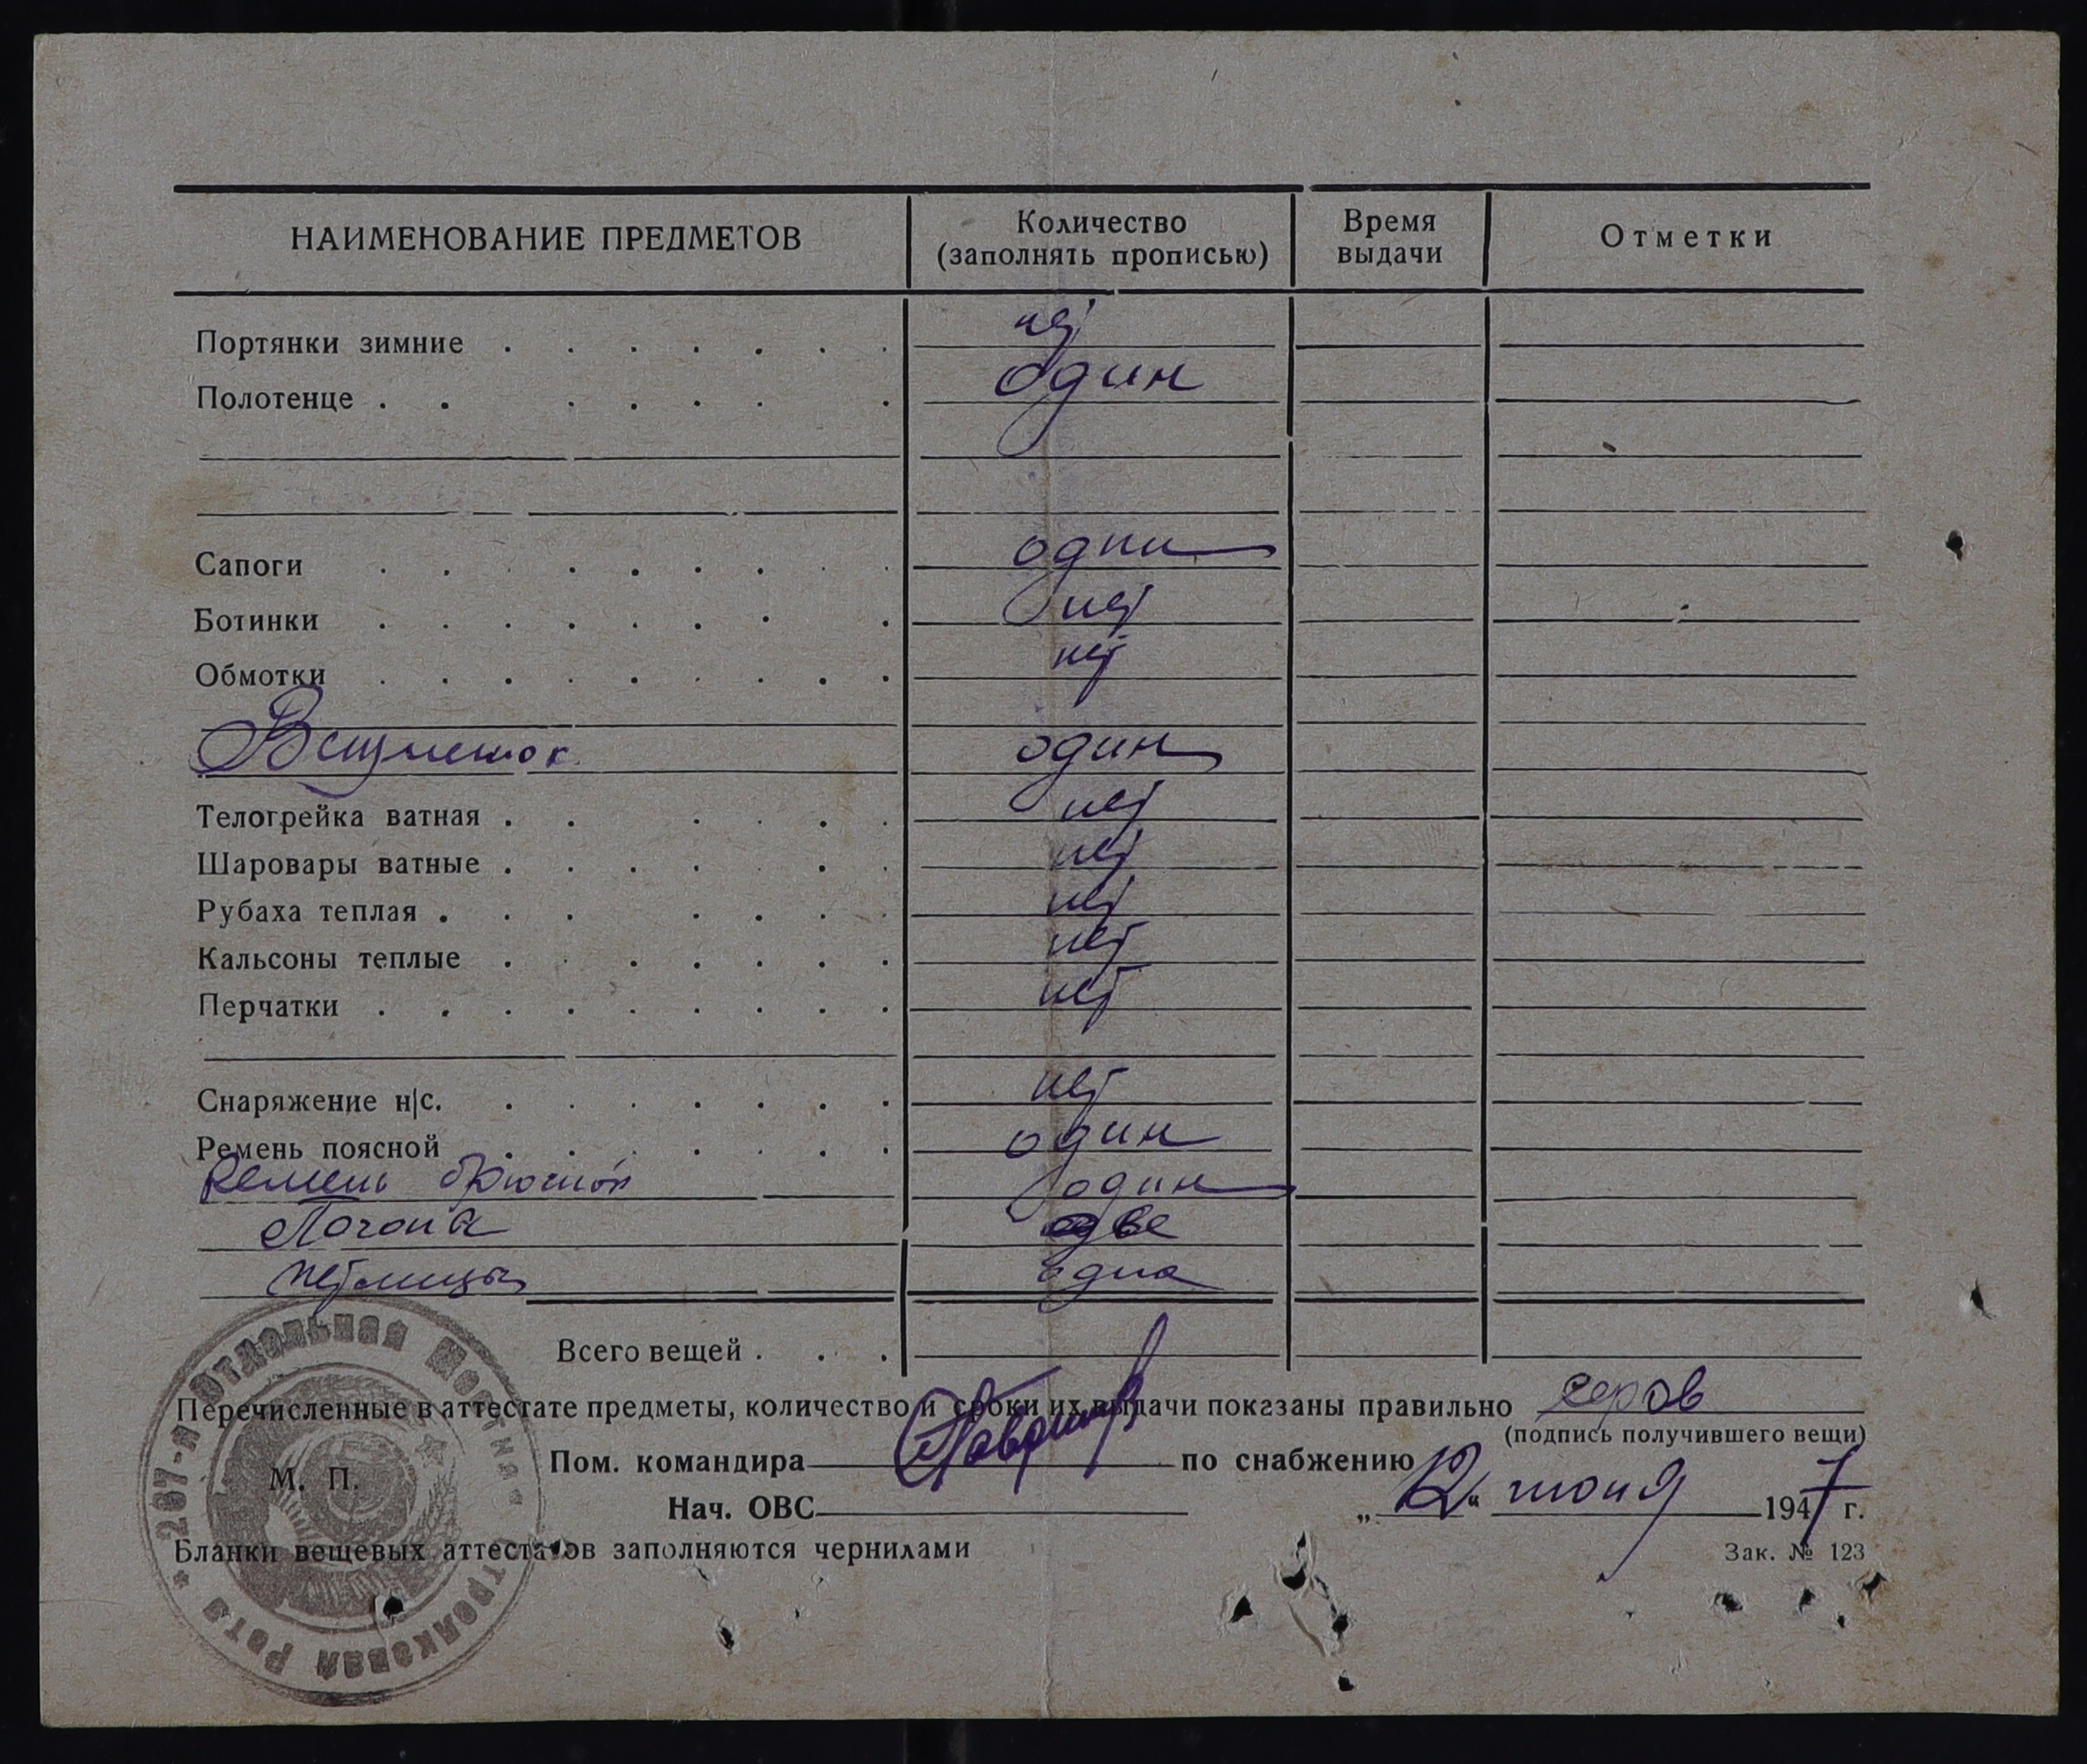 НАИМЕНОВАНИЕ ПРЕДМЕТОВ Количество (заполнять прописью) Время выдачи Отметки
Портянки зимние нет
Полотенце один
Сапоги одни
Ботинки нет
Обмотки нет
Вещмешок один
Телогрейка ватная нет
Шаровары ватные нет
Рубаха теплая нет
Кальсоны теплые нет
Перчатки нет
Снаряжение н/с. нет
Ремень поясной один
Ремень брючной один
Погона две
Петлицы одна
Всего вещей
Перечисленные в аттестате предметы, количество и сроки их выдачи показаны правильно Серов
(подпись получившего вещи)
Пом. командира по снабжению
М. П.
Нач. ОВС „12“ июня 1947 г.
Бланки вещевых аттестатов заполняются чернилами Зак. № 123
267-я Отдельная Местная Стрелковая Рота